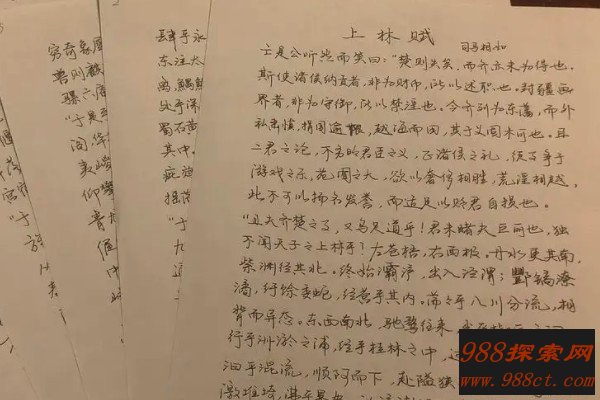 穷奇象犀
兽则麒
骡
"于是
肆乎永
东注太
处乎深
蜀石黄
其中。
"于
上林赋
司马相如
亡是公听然而笑曰:"楚则失矣,而齐亦未为得也。
夫使诸侯纳贡者,非为财币,所以述职也。封疆画
界者,非为守御,所以禁淫也。今齐列为东藩,而外
私肃慎,捐国逾限,越海而田,其于义固未可也。且
二君之论,不务明君臣之义,正诸侯之礼,徒事争于
游戏之乐,苑囿之大,欲以奢侈相胜,荒淫相越,
此不可以扬名发誉,而适足以贬君自损也。
"且夫齐楚之事,又乌足道乎!君未睹夫巨丽也,独
不闻天子之上林乎?左苍梧,右西极。丹水更其南,
紫渊径其北。终始灞浐,出入泾渭;酆镐潦
潏,纡馀委蛇,经营乎其内。荡荡乎八川分流,相
背而异态。东西南北,驰骛往来,
行乎洲淤之浦,经乎桂林之中,
汩乎混流,顺阿而下,赴隘狭
激堆埼,
988探索网
www.988ct.com